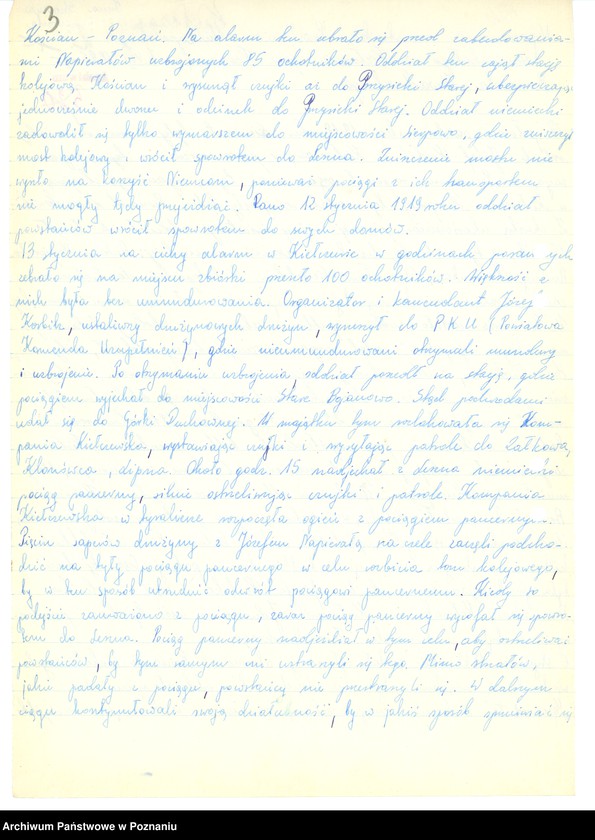 3
Kościan - Poznań. Na alarm ten zebrało się przed zabudowania-
mi Napierałów uzbrojonych 85 ochotników. Oddział ten zajął stację
kolejową Kościan i wysunął czujki aż do Przysieki Starej, ubezpieczając
jednocześnie dworzec i odcinek do Przysieki Starej. Oddział niemiecki
zadowolił się tylko wymarszem do miejscowości , gdzie zniszczył
most kolejowy i wrócił spowrotem do Leszna. Zniszczenie mostu nie
wyszło na korzyść Niemcom, ponieważ pociągi z ich transportem
nie mogły tędy przejeżdżać. Rano 12 stycznia 1919 roku oddział
powstańców wrócił spowrotem do swych domów.
13 stycznia na cichy alarm w Kiełczewie w godzinach poran nych
zebrało się na miejscu zbiórki przeszło 100 ochotników. Większość z
nich była bez umundurowania. Organizator i komendant Józef
, ustaliwszy drużynowych drużyn, wyruszył do P K U (Powiatowa
Komenda Uzupełnień), gdzie nieumundurowani otrzymali mundury
i uzbrojenie. Po otrzymaniu uzbrojenia, oddział poszedł na stację, gdzie
pociągiem wyjechał do miejscowości Stare Bojanowo. Stąd podwodami
udał się do Górki Duchownej. W majątku tym rozlokowała się Kom-
pania Kiełczewska, wystawiając czujki i wysyłając patrole do Żałkowa,
Klonówca, Lipna. Około godz. 15 nadjechał z Leszna niemiecki
pociąg pancerny, silnie ostrzeliwując czujki i patrole. Kompania
Kiełczewska w tyralierze rozpoczęła ogień z pociągiem pancernym.
Pięciu saperów drużyny z Józefem Napierałą na czele zaczęli podcho-
dzić na tyły pociągu pancernego w celu rozbicia toru kolejowego,
by w ten sposób utrudnić odwrót pociągowi pancernemu. Kiedy to
podejście zauważono z pociągu, zaraz pociąg pancerny wycofał się spowro-
tem do Leszna. Pociąg pancerny nadjeżdżał w tym celu, aby ostrzeliwać
powstańców, by tym samym oni ustraszyli się tego. Mimo strzałów,
jakie padały z pociągu, powstańcy nie przestraszyli się. W dalszym
ciągu kontynuowali swoją działalność, by w jakiś sposób się
Archiwum Państwowe w Poznaniu